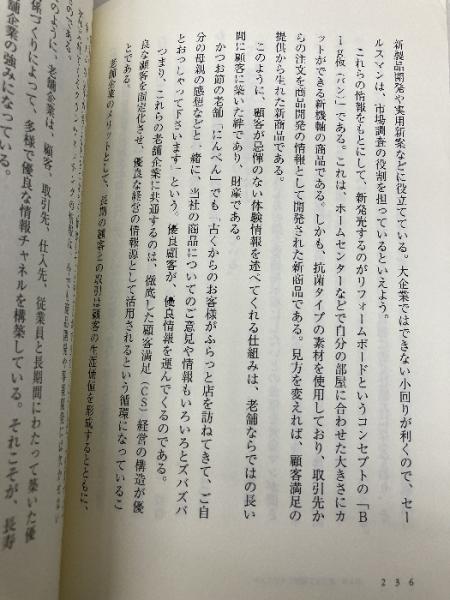 新製品開発や実用新案などに役立てている。大企業ではできない小回りが利くので、セー
ルスマンは、市場調査の役割を担っているといえよう。
これらの情報をもとにして、新発売するのがリフォームボードというコンセプトの「B
ig板（バン）」である。これは、ホームセンターなどで自分の部屋に合わせた大きさにカ
ットができる新機軸の商品である。しかも、抗菌タイプの素材を使用しており、取引先か
らの注文を商品開発の情報として開発された新商品である。見方を変えれば、顧客満足の
提供から生れた新商品である。
このように、顧客が忌憚のない体験情報を述べてくれる仕組みは、老舗ならではの長い
間に顧客に築いた絆であり、財産である。
かつお節の老舗「にんべん」でも「古くからのお客様がふらっと店を訪ねてきて、ご自
分の母親の感想などと一緒に、当社の商品についてのご意見や情報もいろいろとズバズバ
とおっしゃって下さいます」という。優良顧客が、優良情報を運んでくるのである。
つまり、これらの老舗企業に共通するのは、徹底した顧客満足（CS）経営の構造が優
良な顧客を固定化させ、優良な経営の情報源として活用されるという循環になっているこ
とである。
老舗企業のメリットとして、長期の顧客との取引は顧客の生涯価値を形成するとともに、
のように、老舗企業は、顧客、取引先、仕入先、従業員と長期間にわたって築いた優
係づくりによって、多様で優良な情報チャネルを構築している。それこそが、長寿
舗企業の強みになっている。
236